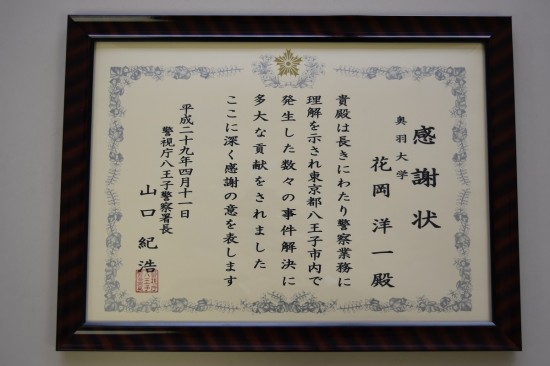 感謝状
奥羽大学
花岡洋一殿
貴殿は長きにわたり警察業務に
理解を示され東京都八王子市内で
発生した数々の事件解決に
多大な貢献をされました
ここに深く感謝の意を表します
平成二十九年四月十一日
警視庁八王子警察署長
山口紀浩